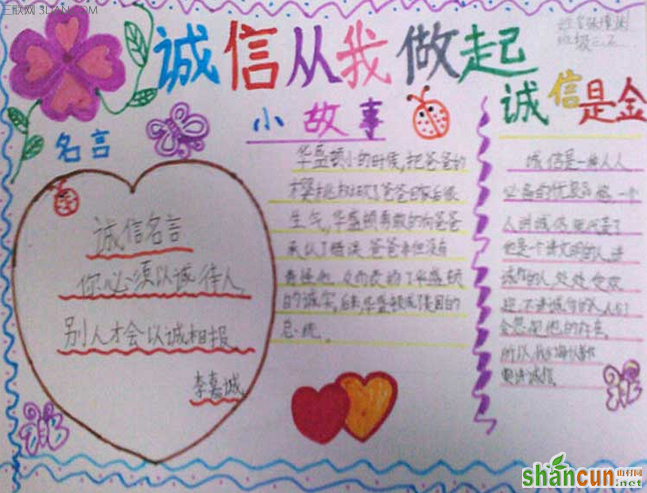 三联网 3LIAN.COM
诚信从我做起
班级二.2
诚信是金
小故事
名言
诚信名言
你必须以诚待人,
别人才会以诚相报.
李嘉诚.
华盛顿小的时候,把爸爸的
樱桃树砍了爸爸回家后很
生气,华盛顿勇敢的向爸爸
承认了错误,爸爸并但没有
的诚实,后来,华盛顿成了美国的
总统。
诚信是一种人人
必备的优良品格,一个
人讲诚信,就代表了
他是个讲文明的人,讲
诚信的人,处处受欢
迎,不讲诚信的人,人们
会忽视他的存在,
所以,我们每个人都
要讲诚信。
shancun 山村网
.net